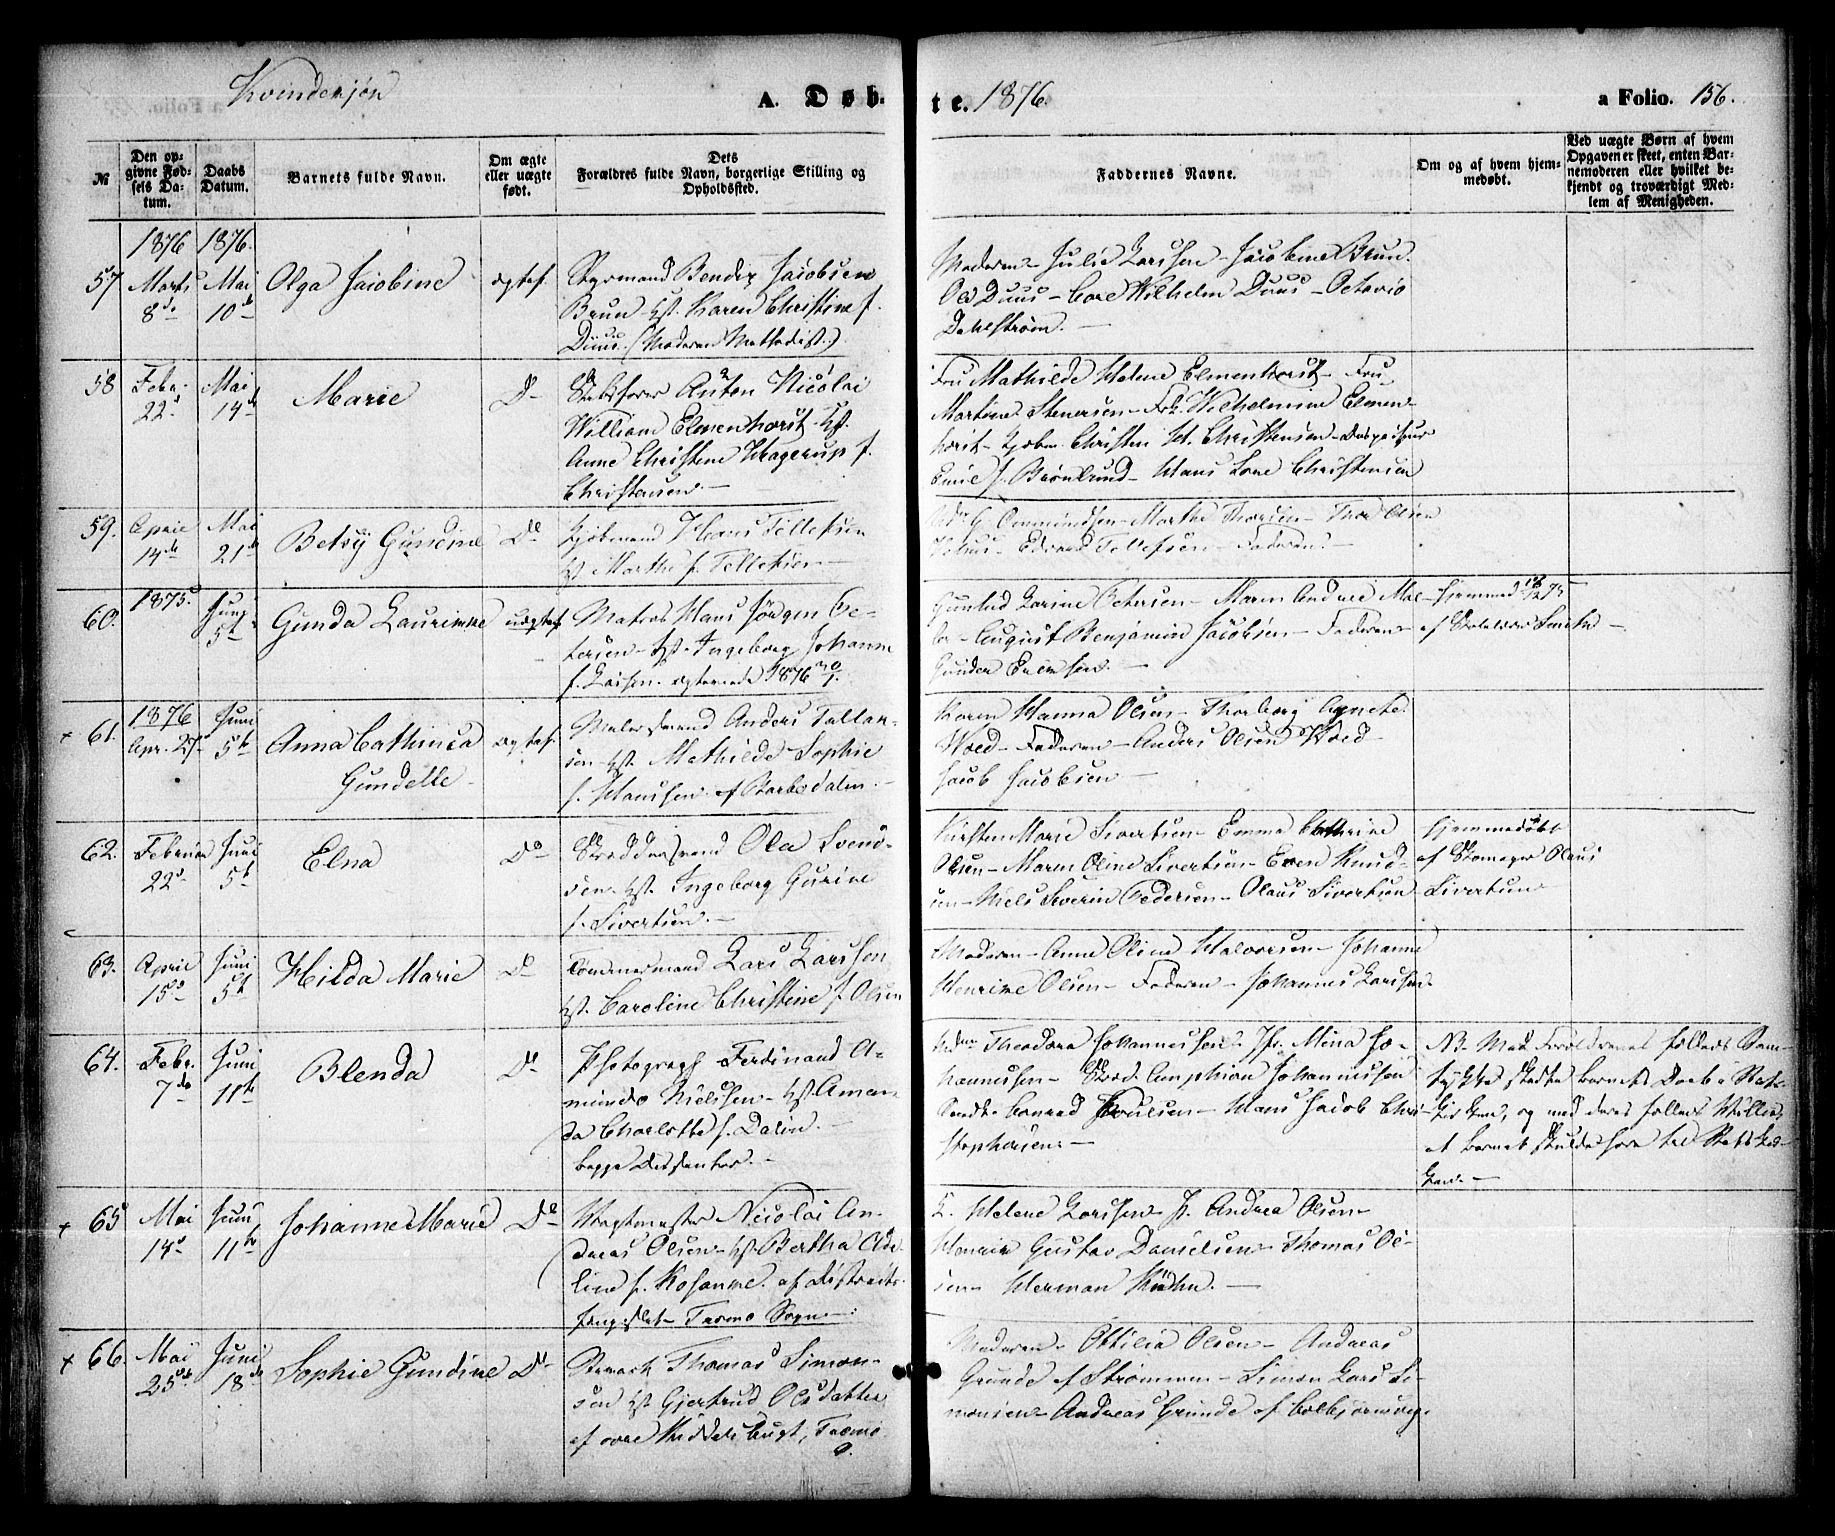 Kvindekjøn
A. Døb-
te. 1876.
a Folio. 156.
№
Den op-
givne Fød-
sels Da-
tum.
Daabs
Datum.
Barnets fulde Navn.
Om ægte
eller uægte
født.
Dets
Forældres fulde Navn, borgerlige Stilling og
Opholdssted.
Faddernes Navne.
Om og af hvem hjem-
medøbt.
Ved uægte Børn af hvem
Opgaven er skeet, enten Bar-
nemoderen eller hvilket be-
kjendt og troværdigt Med-
lem af Menigheden.
1876 1876.
57 Marts 8de Mai 10de Olga Jacobine ægtef.
Styrmand Bendix Jacobsen
Brun Hst. Karen Christine f.
Duus. (Moderen Methodist.)
Moderen - Julie Larssen - Jacobine Brun.
Ole Duus - Carl Wilhelm Duus - Octavio
Dahlstrøm. -
58 Febr. 22de Mai 14de Marie Do
Anton Nicolai
William Elmenhorst Hst.
Anne Christine Hagerup f.
Christensen. -
Fru Mathilde Helene Elmenhorst - Fru
Martine Stenersen - Frk. Wilhelmine Elmen-
horst - Kjøbm. Christen H. Christensen - Dispacheur
Emil f. Brønlund - Hans Lone Christensen
59. April 14de Mai 21de Betsy Gundine Do
Kjøbmand Hans Tellefsen
Hst. Marthe f. Tellefsen -
Ommundsen - Marthe Thorsen - Thor Olsen
Edvard Tellefsen - Faderen. -
60. 1875. Juni 5te Gunda Laurinne uægtef.
Matros Hans Jørgen Pe-
tersen - Hst. Ingeborg Johanne
f. Larsen. ægteviede 1876 30/1.
Gunhild Larine Petersen - Maren Andrea
August Benjamin Jacobsen - Faderen
Gunder Evensen. -
Hjemmed.
af Smith -
+ 61. 1876 Apr. 27 Juni 5te Anna Cathinca
Gundelle - ægtef.
Malersvend Anders Tallak-
sen Hst. Mathilde Sophie
f. Hanssen af Barbodalen. -
Karen Hanna Olsen - Thorborg Agnete
Woed - Faderen - Anders Olsen Woed -
Jacob Jacobsen -
62. Februar 22de Juni 5te Elna Do
Skræddersvend Ola Svend-
sen Hst. Ingeborg Gurine
f. Sivertsen. -
Kirsten Marie Sivertsen - Emma Cathrine
Olsen - Maren Oline Sivertsen - Even Knud-
sen - Niels Severin Pedersen - Olaus Sivertsen
Hjemmedøbt
af Skomager Olaus
Sivertsen -
63. April 15de Juni 5te Hilda Marie Do
Tømmermand Lars Larssen
Hst. Caroline Christine f. Olsen
Moderen - Anne Oline Halvorsen - Johanne
Henrine Olsen - Faderen - Johannes Larssen.
64. Febr. 7de Juni 11te Blenda Do
Photograph Ferdinand A-
mundo Nielssen - Hst. Aman-
da Charlotte f. Dalin. -
begge Dissenter. -
Theodora Johannessen - Jfr. Mina Jo-
hannessen - Amphion Johannessen
Conrad Poulsen - Hans Jacob Chri-
stophersen -
NB. Med Forældrenes fælleds Sam-
tykke skede Barnets Daab i Stats-
kirken, og med deres fælleds Villie,
at Barnet skulde høre til Statskir-
ken. -
+ 65 Mai 14de Juni 11te Johanne Marie Do
Vagtmester Nicolai An-
dreas Olsen - Hst. Bertha Ade-
line f. Rosanne. af Distrikts-
fengslet - Tromø Sogn -
Helene Larssen - Andrea Olsen -
Henrik Gustav Danielsen - Thomas Ol-
sen - Herman Kühn. -
+ 66. Mai 25de Juni 18de Sophie Gundine Do
Thomas Simon-
sen Hst. Gjertrud Olsdatter
af bugt, Tromø
Moderen - Ottilia Olsen - Andreas
Grunde af Strømmen - Simon Lars Si-
monsen - Andreas Grunde af Colbjørnsvig.